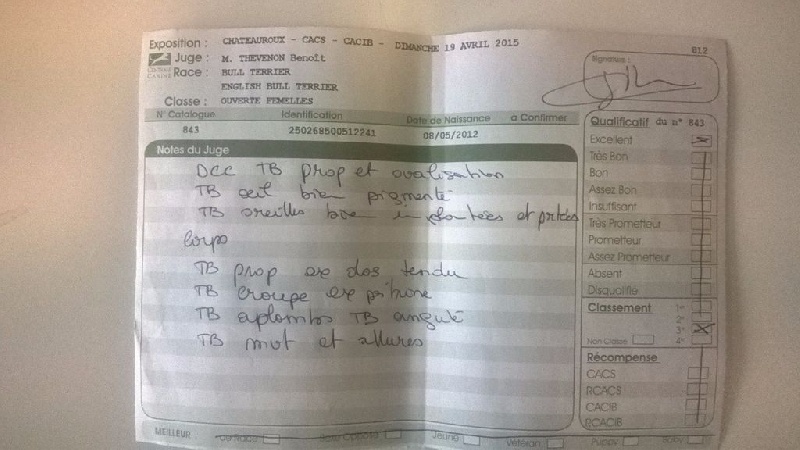 Exposition : CHATEAUROUX - CACS - CACIB - DIMANCHE 19 AVRIL 2015
612
Juge : M. THEVENON Benoît
Race : BULL TERRIER
ENGLISH BULL TERRIER
Classe : OUVERTE FEMELLES
Signature :
N° Catalogue Identification Date de Naissance a Confirmer
843 250268500512241 08/05/2012
Qualificatif du n° 843
Excellent
Très Bon
Bon
Assez Bon
Insuffisant
Très Prometteur
Prometteur
Assez Prometteur
Absent
Disqualifié
Classement 1°
2°
3°
Non Classé 4°
Récompense
CACS
RCACS
CACIB
RCACIB
Notes du Juge
TB prop et ovalisation
TB œil bien pigmenté
TB oreilles bien implantées et portées
Corps
TB prop ex dos tendu
TB croupe ex poitrine
TB aplombs TB angulé
TB mvt et allures
MEILLEUR Jeune Vétéran Puppy Baby